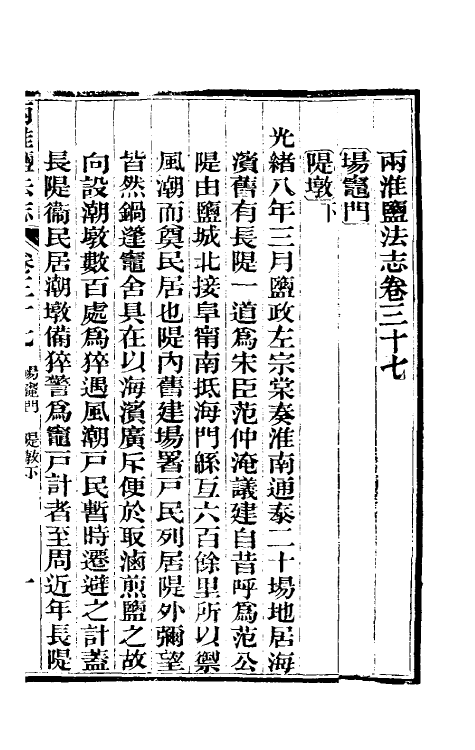 兩淮鹽法志卷三十七
場竈門
隄墩下
光緒八年三月鹽政左宗棠奏淮南通泰二十場地居海
濱舊有長隄一道爲宋臣范仲淹議建自昔呼爲范公
隄由鹽城北接阜甯南抵海門緜亙六百餘里所以禦
風潮而奠民居也隄內舊建場署戶民列居隄外彌望
皆然鍋䉶竈舍具在以海濱廣斥便於取滷煎鹽之故
向設潮墩數百處爲猝遇風潮戶民暫時遷避之計蓋
長隄衞民居潮墩備猝警爲竈戶計者至周近年長隄
兩淮鹽法志 卷三十七 場竈門 隄墩下 一